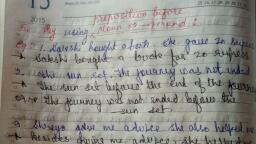 13 2015
Preposition before
By using Noun or Gerund
1. Sakshi bought a book. She gave 20 rupees
Sakshi bought a book for 20 rupees
2. The sun set. The journey was not ended
The sun set before the end of the journey
or The journey was not ended before the
sun set
Shreya gave me advice she also helped me
Besides giving me advice, she helped